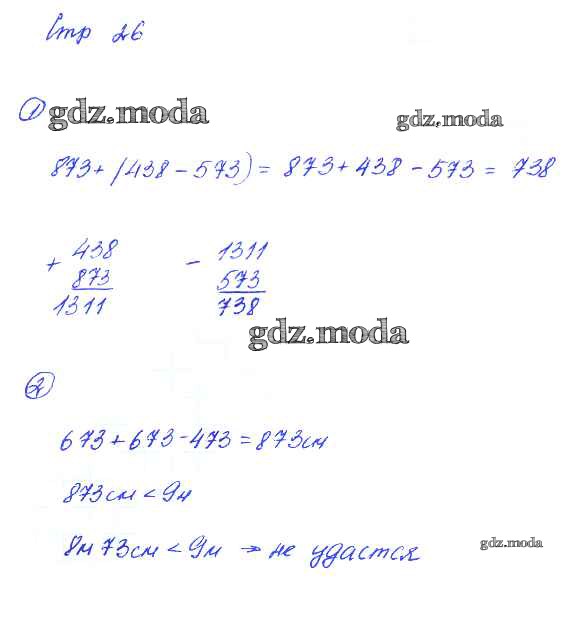 Стр 26
1 gdz.moda gdz.moda
873+(438-573)= 873+438-573 = 738
+ 438 - 1311
873 573
1311 738
gdz.moda
2
673+673-473=873см
873см<9м
8м 73см<9м → не удастся gdz.moda